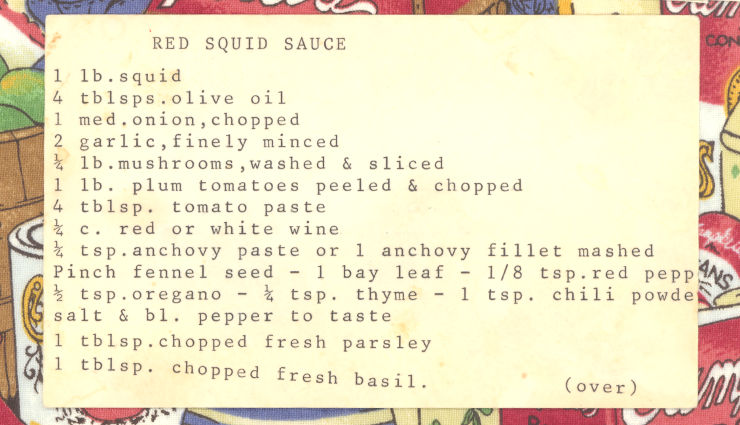 RED SQUID SAUCE
1 lb.squid
4 tblsps.olive oil
1 med.onion,chopped
2 garlic,finely minced
¼ lb.mushrooms,washed & sliced
1 lb. plum tomatoes peeled & chopped
4 tblsp. tomato paste
¼ c. red or white wine
¼ tsp.anchovy paste or 1 anchovy fillet mashed
Pinch fennel seed - 1 bay leaf - 1/8 tsp.red pepp
½ tsp.oregano - ¼ tsp. thyme - 1 tsp. chili powde
salt & bl. pepper to taste
1 tblsp.chopped fresh parsley
1 tblsp. chopped fresh basil.
(over)